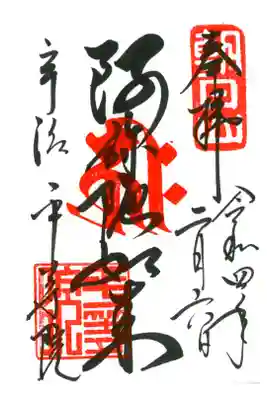 奉拝
令和四年
二月六日
阿弥陀如来
宇治 平等院